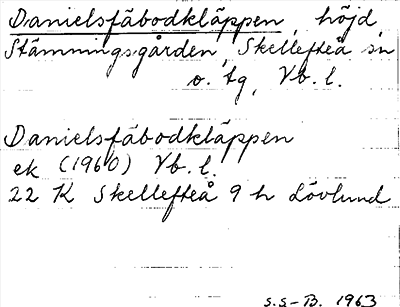 Danielsfäbodkläppen, höjd
Stämningsgården, Skellefteå sn
o. tg, Vb. l.
Danielsfäbodkläppen
ek (1960) Vb. l.
22 K Skellefteå 9 h Lövlund
S.S-B. 1963